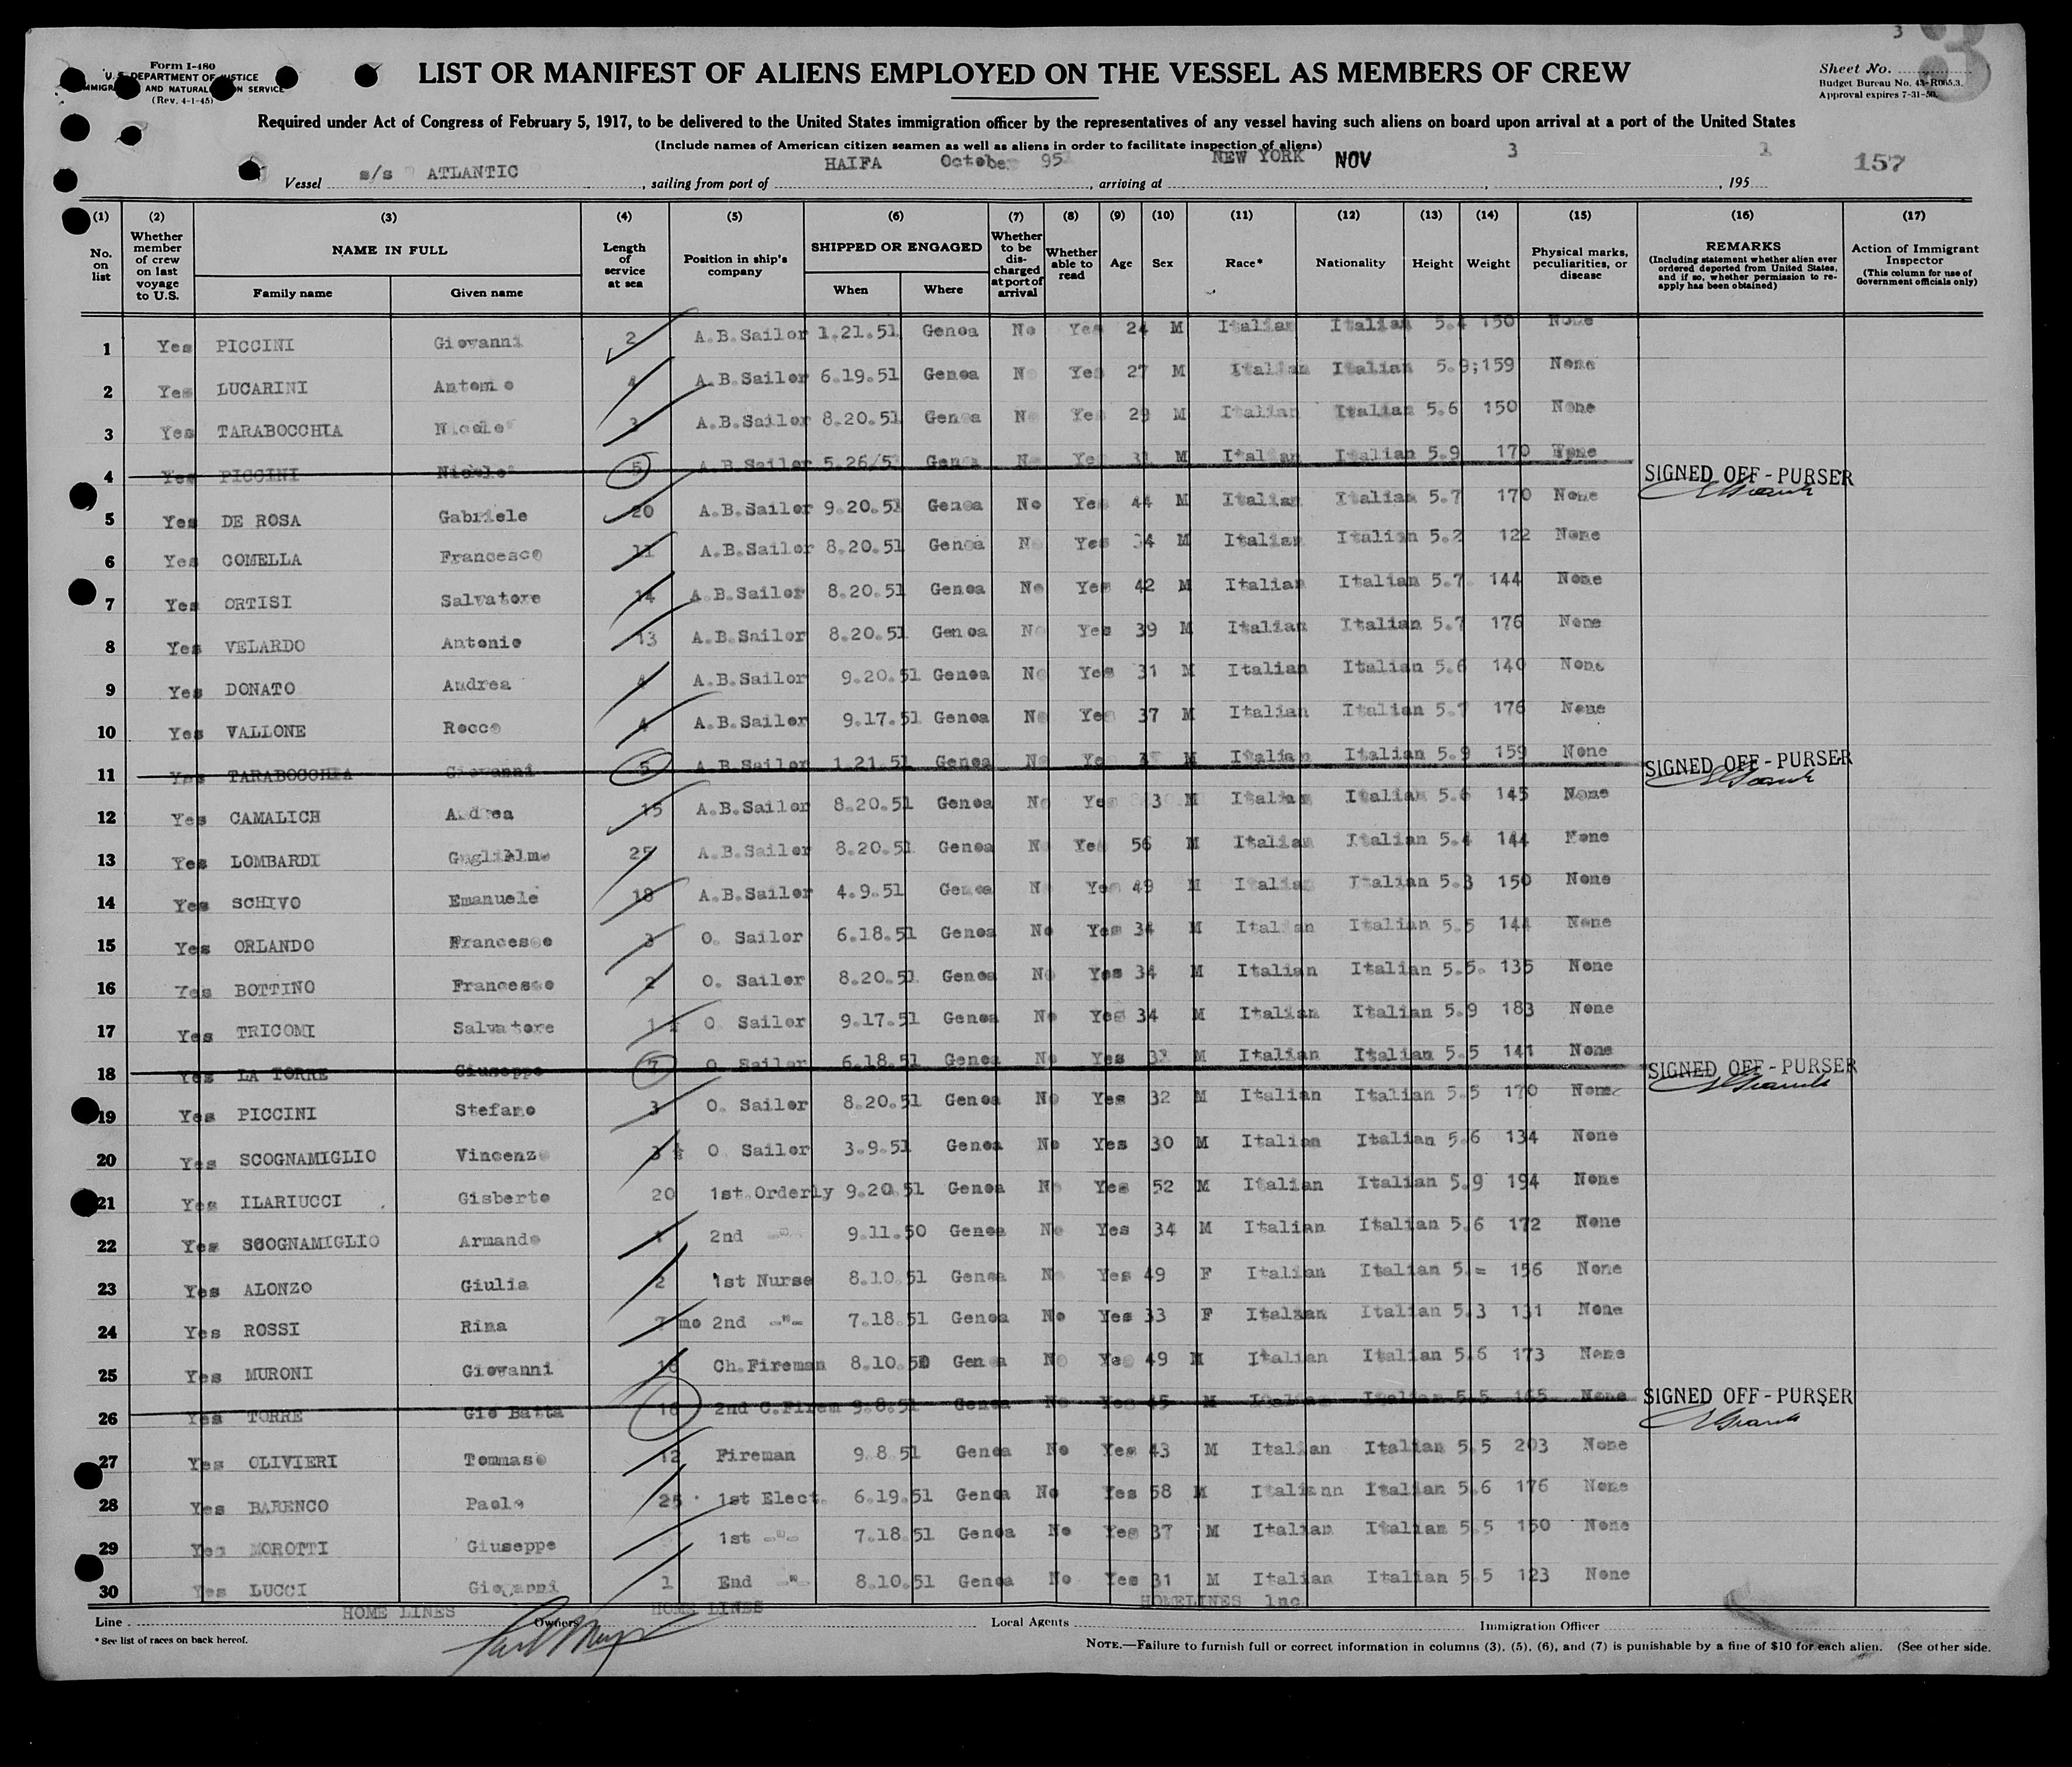 3
3
Form I-480
U. S. DEPARTMENT OF JUSTICE
IMMIGRATION AND NATURALIZATION SERVICE
(Rev. 4-1-45)
LIST OR MANIFEST OF ALIENS EMPLOYED ON THE VESSEL AS MEMBERS OF CREW
Sheet No.
Budget Bureau No. 43-R065.3.
Approval expires 7-31-50.
Required under Act of Congress of February 5, 1917, to be delivered to the United States immigration officer by the representatives of any vessel having such aliens on board upon arrival at a port of the United States
(Include names of American citizen seamen as well as aliens in order to facilitate inspection of aliens)
Vessel s/s ATLANTIC, sailing from port of HAIFA October 95, arriving at NEW YORK NOV 3, 195 157
(1) (2) (3) (4) (5) (6) (7) (8) (9) (10) (11) (12) (13) (14) (15) (16) (17)
No. on list
Whether member of crew on last voyage to U.S.
NAME IN FULL
Family name Given name
Length of service at sea
Position in ship's company
SHIPPED OR ENGAGED
When Where
Whether to be discharged at port of arrival
Whether able to read
Age Sex Race* Nationality Height Weight
Physical marks, peculiarities, or disease
REMARKS
(Including statement whether alien ever ordered deported from United States, and if so, whether permission to re-apply has been obtained)
Action of Immigrant Inspector
(This column for use of Government officials only)
1 Yes PICCINI Giovanni 2 A.B.Sailor 1.21.51 Genoa No Yes 24 M Italian Italian 5.4 150 None
2 Yes LUCARINI Antonio 4 A.B.Sailor 6.19.51 Genoa No Yes 27 M Italian Italian 5.9;159 None
3 Yes TARABOCCHIA Nicolo 3 A.B.Sailor 8.20.51 Genoa No Yes 29 M Italian Italian 5.6 150 None
4 Yes PICCINI Nicolo 5 A.B.Sailor 5.26/5 Genoa No Yes M Italian Italian 5.9 170 None SIGNED OFF - PURSER
5 Yes DE ROSA Gabriele 20 A.B.Sailor 9.20.51 Genoa No Yes 44 M Italian Italian 5.7 170 None
6 Yes COMELLA Francesco 11 A.B.Sailor 8.20.51 Genoa No Yes 34 M Italian Italian 5.2 122 None
7 Yes ORTISI Salvatore 14 A.B.Sailor 8.20.51 Genoa No Yes 42 M Italian Italian 5.7. 144 None
8 Yes VELARDO Antonio 13 A.B.Sailor 8.20.51 Genoa No Yes 39 M Italian Italian 5.7 176 None
9 Yes DONATO Andrea 4 A.B.Sailor 9.20.51 Genoa No Yes 31 M Italian Italian 5.6 140 None
10 Yes VALLONE Rocco 4 A.B.Sailor 9.17.51 Genoa No Yes 37 M Italian Italian 5.7 176 None
11 Yes TARABOCCHIA Giovanni 5 A.B.Sailor 1.21.51 Genoa No Yes M Italian Italian 5.9 159 None SIGNED OFF - PURSER
12 Yes CAMALICH Andrea 15 A.B.Sailor 8.20.51 Genoa No Yes M Italian Italian 5.6 145 None
13 Yes LOMBARDI Guglielmo 25 A.B.Sailor 8.20.51 Genoa No Yes 56 M Italian Italian 5.4 144 None
14 Yes SCHIVO Emanuele 18 A.B.Sailor 4.9.51 Genoa No Yes 49 M Italian Italian 5.3 150 None
15 Yes ORLANDO Francesco 3 O. Sailor 6.18.51 Genoa No Yes 34 M Italian Italian 5.5 144 None
16 Yes BOTTINO Francesco 2 O. Sailor 8.20.51 Genoa No Yes 34 M Italian Italian 5.5. 135 None
17 Yes TRICOMI Salvatore 1 O Sailor 9.17.51 Genoa No Yes 34 M Italian Italian 5.9 183 None
18 Yes LA TORRE Giuseppe 7 O. Sailor 6.18.51 Genoa No Yes M Italian Italian 5.5 141 None SIGNED OFF - PURSER
19 Yes PICCINI Stefano 3 O. Sailor 8.20.51 Genoa No Yes 32 M Italian Italian 5.5 170 None
20 Yes SCOGNAMIGLIO Vincenzo 3 ½ O Sailor 3.9.51 Genoa No Yes 30 M Italian Italian 5.6 134 None
21 Yes ILARIUCCI Gisberto 20 1st.Orderly 9.20.51 Genoa No Yes 52 M Italian Italian 5.9 194 None
22 Yes SCOGNAMIGLIO Armando 4 2nd -"- 9.11.50 Genoa No Yes 34 M Italian Italian 5.6 172 None
23 Yes ALONZO Giulia 2 1st Nurse 8.10.51 Genoa No Yes 49 F Italian Italian 5.= 156 None
24 Yes ROSSI Rina 7 mo 2nd -"- 7.18.51 Genoa No Yes 33 F Italian Italian 5.3 131 None
25 Yes MURONI Giovanni Ch.Fireman 8.10.50 Genoa No Yes 49 M Italian Italian 5.6 173 None
26 Yes TORRE Gio Batta 16 2nd C.Firem 9.8.51 Genoa No Yes 45 M Italian Italian 5.5 165 None SIGNED OFF - PURSER
27 Yes OLIVIERI Tommaso 12 Fireman 9.8.51 Genoa No Yes 43 M Italian Italian 5.5 203 None
28 Yes BARENCO Paolo 25 1st Elect. 6.19.51 Genoa No Yes 58 M Italiann Italian 5.6 176 None
29 Yes MOROTTI Giuseppe 1st -"- 7.18.51 Genoa No Yes 37 M Italian Italian 5.5 150 None
30 Yes LUCCI Giovanni 1 End -"- 8.10.51 Genoa No Yes 31 M Italian Italian 5.5 123 None
Line HOME LINES Owners HOME LINES Local Agents HOMELINES lnc. Immigration Officer
* See list of races on back hereof.
NOTE.—Failure to furnish full or correct information in columns (3), (5), (6), and (7) is punishable by a fine of $10 for each alien. (See other side.